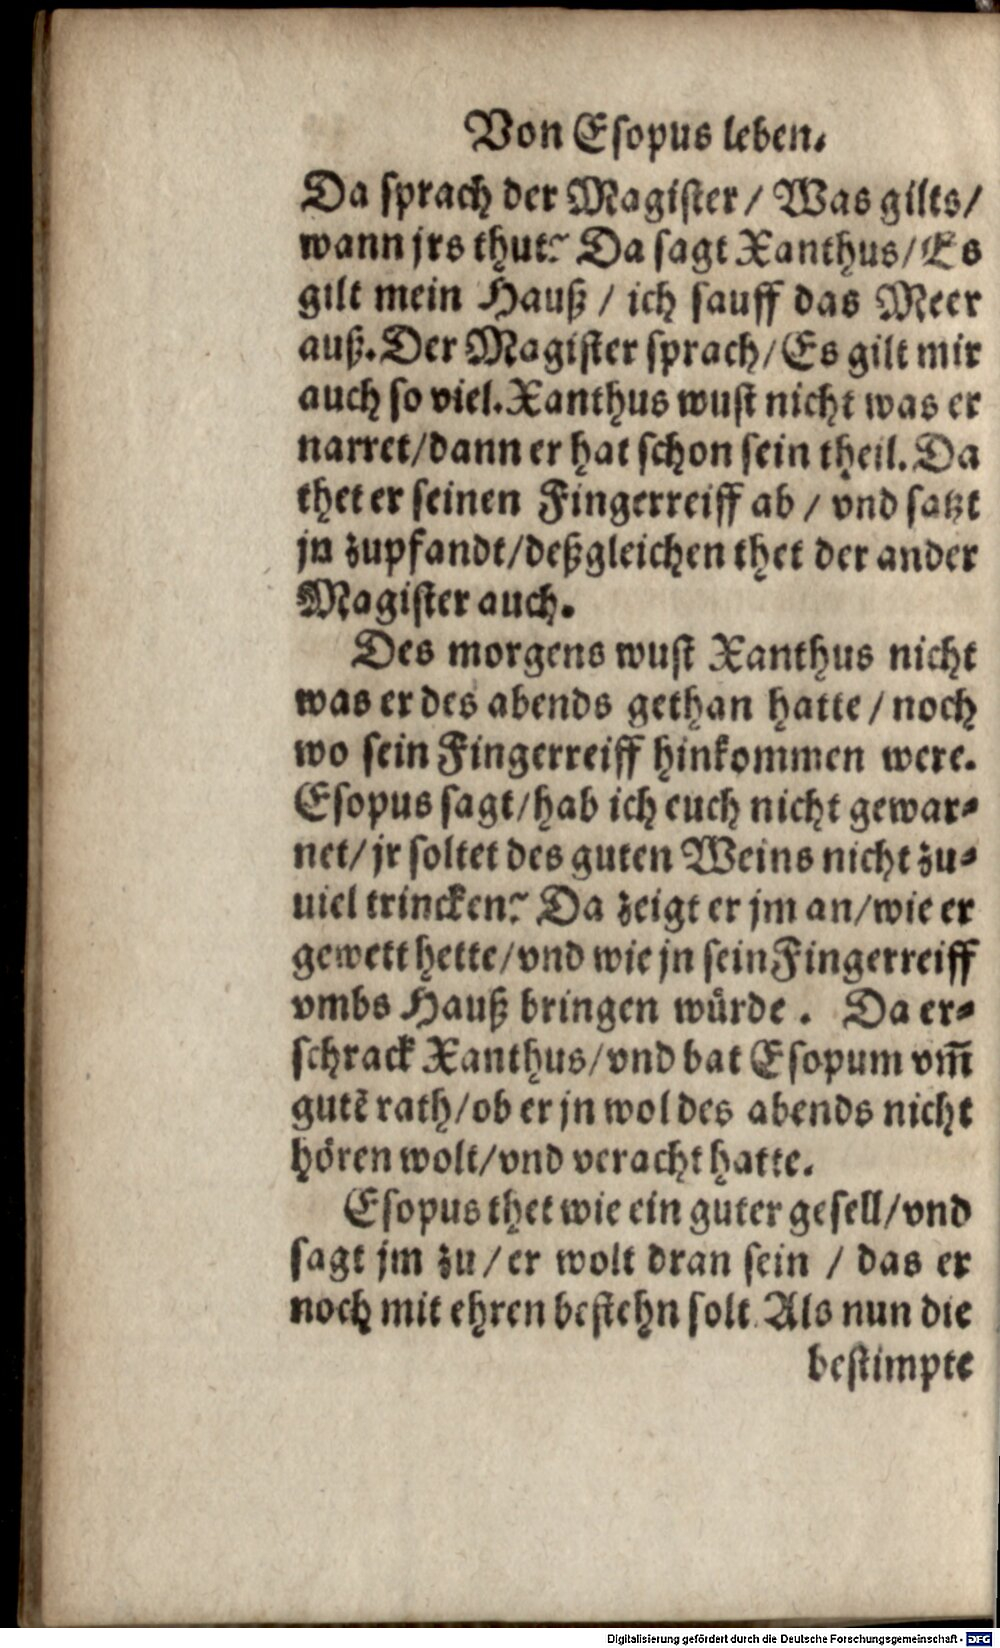 Von Esopus leben.
Da sprach der Magister / Was gilts /
wann jrs thut? Da sagt Xanthus / Es
gilt mein Hauß / ich sauff das Meer
auß. Der Magister sprach / Es gilt mir
auch so viel. Xanthus wust nicht was er
narret / dann er hat schon sein theil. Da
thet er seinen Fingerreiff ab / vnd satzt
jn zupfandt / deßgleichen thet der ander
Magister auch.
Des morgens wust Xanthus nicht
was er des abends gethan hatte / noch
wo sein Fingerreiff hinkommen were.
Esopus sagt / hab ich euch nicht gewar-
net / jr soltet des guten Weins nicht zu-
uiel trincken? Da zeigt er jm an / wie er
gewett hette / vnd wie jn sein Fingerreiff
vmbs Hauß bringen würde. Da er-
schrack Xanthus / vnd bat Esopum vm̃
gutẽ rath / ob er jn wol des abends nicht
hören wolt / vnd veracht hatte.
Esopus thet wie ein guter gesell / vnd
sagt jm zu / er wolt dran sein / das er
noch mit ehren bestehn solt. Als nun die
bestimpte
Digitalisierung gefördert durch die Deutsche Forschungsgemeinschaft - DFG